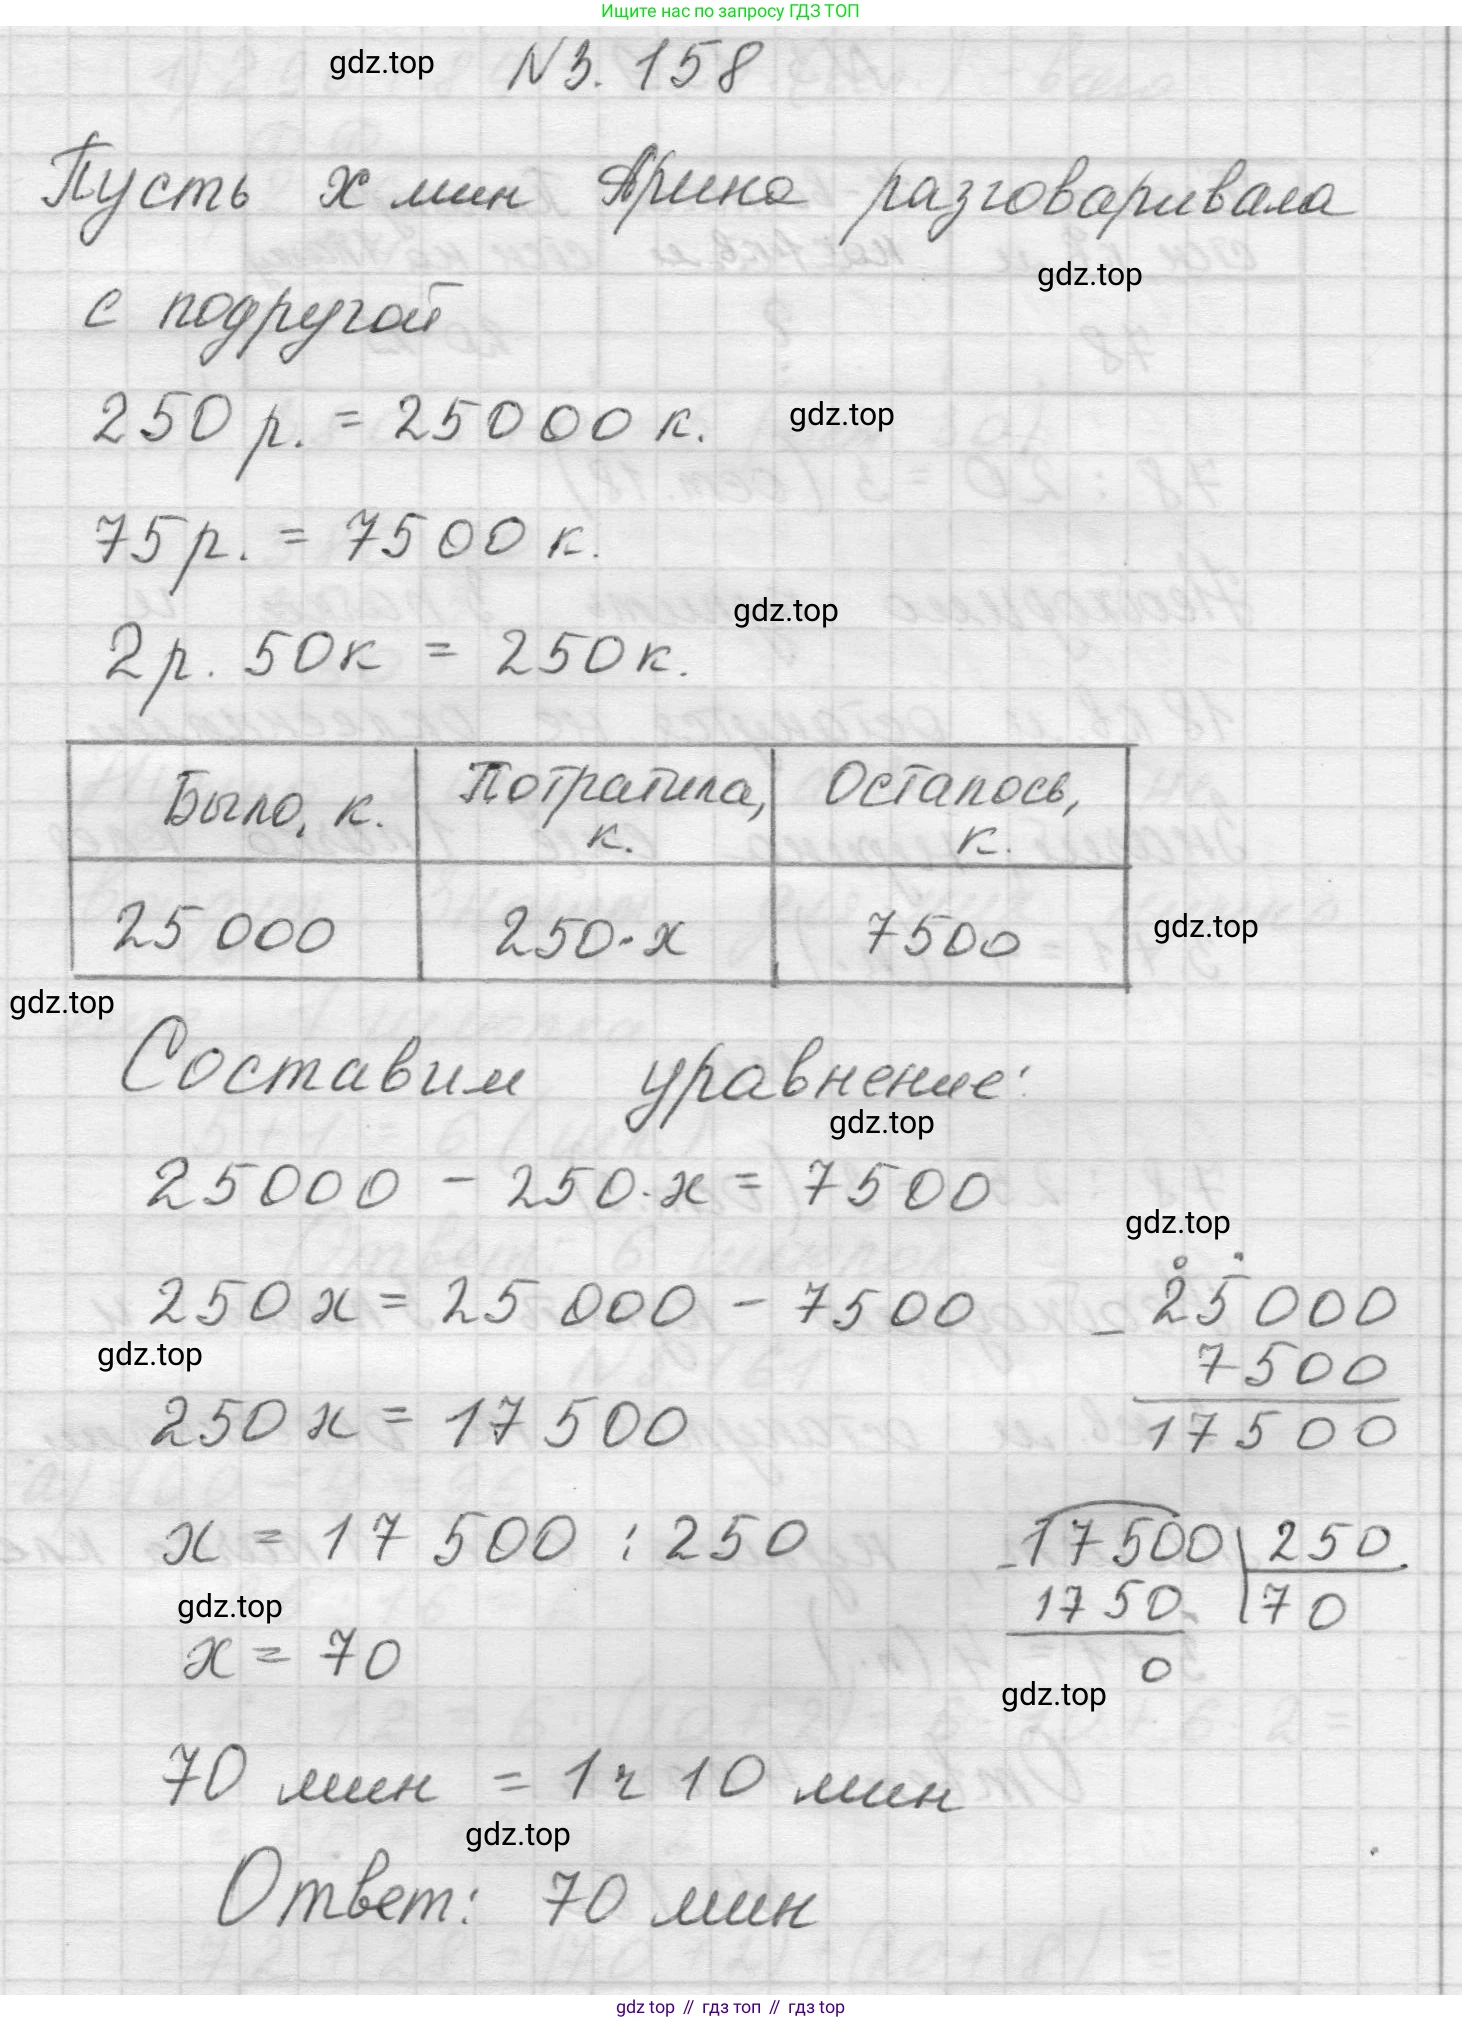 Ищите нас по запросу ГДЗ ТОП
gdz.top
N3.158
Пусть х мин Арина разговаривала
gdz.top
с подругой
250 р. = 25000 к.
gdz.top
75 р. = 7500 к.
gdz.top
2 р. 50 к = 250 к.
Было, к.
Потратила, к.
Осталось, к.
25 000
250·х
7500
gdz.top
gdz.top
Составим уравнение:
gdz.top
25000 - 250·х = 7500
gdz.top
250 х = 25 000 - 7500
gdz.top
250 х = 17 500
25000
- 7500
17500
х = 17 500 : 250
gdz.top
х = 70
-17500 250
1750 70
0
gdz.top
70 мин = 1 ч 10 мин
gdz.top
Ответ: 70 мин
gdz top // гдз топ // гдз top